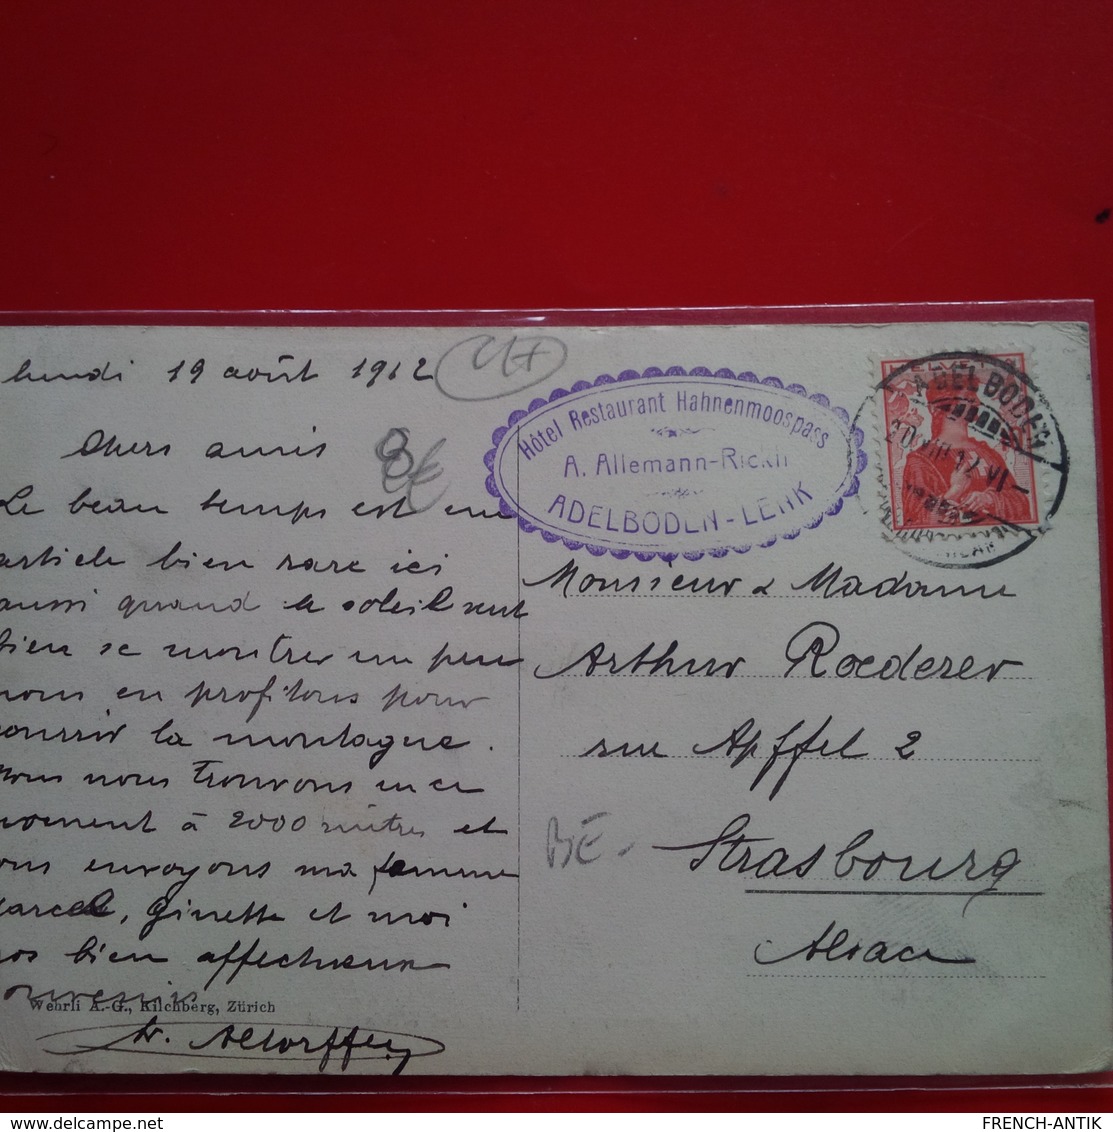 lundi 19 août 1912
Chers amis
Le beau temps est un
article bien rare ici
aussi quand le soleil veut
bien se montrer un peu
nous en profitons pour
courir la montagne.
Nous nous trouvons en ce
moment à 2000 mètres et
vous envoyons ma femme
Marcel, Ginette et moi
nos bien affectueux
souvenirs
Wehrli A.-G., Kilchberg, Zürich
8€
Hôtel Restaurant Hahnenmoospass
A. Allemann-Rickli
ADELBODEN-LENK
HELVETIA
ADELBODEN
Monsieur & Madame
Arthur Roederer
rue Apffel 2
BE -
Strasbourg
Alsace
www.delcampe.net
FRENCH-ANTIK